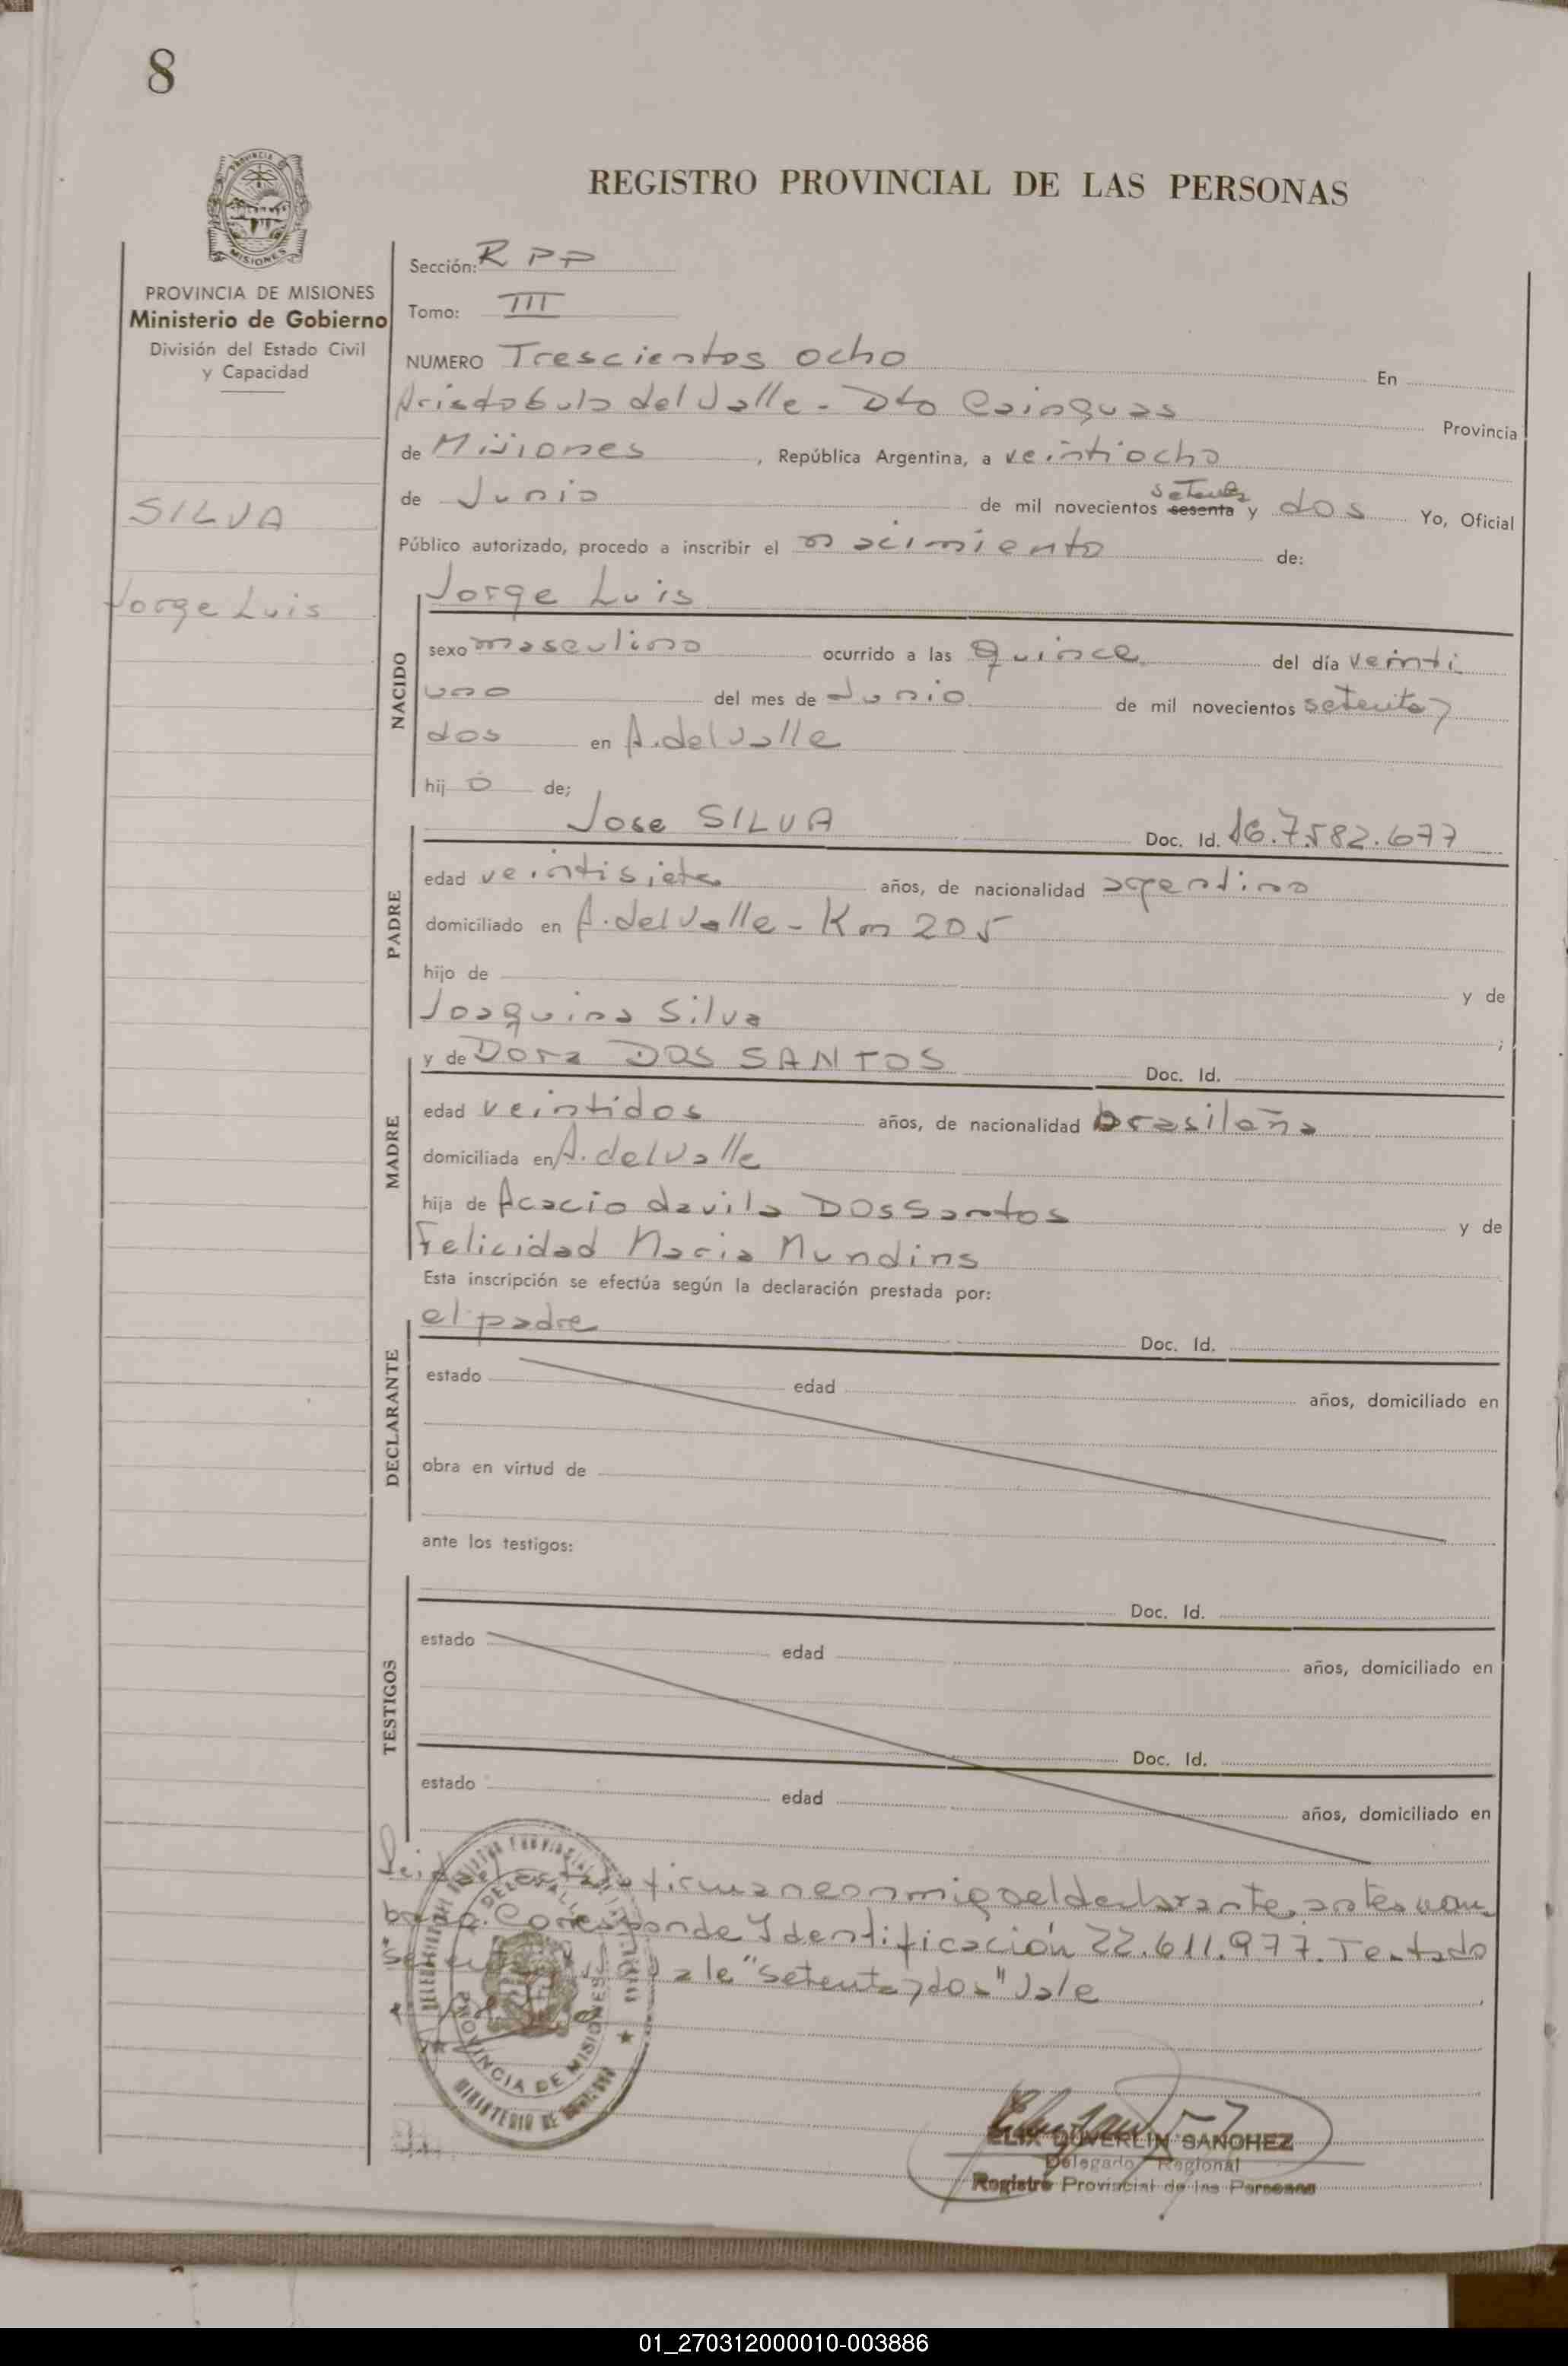 8
REGISTRO PROVINCIAL DE LAS PERSONAS
PROVINCIA DE MISIONES
Ministerio de Gobierno
División del Estado Civil
y Capacidad
SILVA
Jorge Luis
Sección: R P P
Tomo: III
NUMERO Trescientos ocho En
Aristobulo del Valle - Dto Cainguas Provincia
de Misiones, República Argentina, a veintiocho
de Junio de mil novecientos sesenta setenta y dos Yo, Oficial
Público autorizado, procedo a inscribir el nacimiento de:
NACIDO
Jorge Luis
sexo masculino ocurrido a las quince del día veinti
uno del mes de Junio de mil novecientos setenta y
dos en A. del Valle
hij o de;
PADRE
Jose SILVA Doc. Id. 7.582.677
edad veintisiete años, de nacionalidad argentino
domiciliado en A. del Valle - Km 205
hijo de y de
Joaquina Silva ;
MADRE
y de Dora DOS SANTOS Doc. Id.
edad veintidos años, de nacionalidad brasileña
domiciliada en A. del Valle
hija de Acacio davila Dos Santos y de
Felicidad Maria Mundins
Esta inscripción se efectúa según la declaración prestada por:
DECLARANTE
el padre Doc. Id.
estado edad años, domiciliado en
obra en virtud de
ante los testigos:
TESTIGOS
Doc. Id.
estado edad años, domiciliado en
Doc. Id.
estado edad años, domiciliado en
firman conmigo el declarante antes nom
brado. Corresponde Identificación 22.611.977. Testado
vale "setenta y dos" Vale
PROVINCIA DE MISIONES
MINISTERIO DE GOBIERNO
ELIX DUVERLIN SANCHEZ
Delegado Regional
Registro Provincial de las Personas
01_270312000010-003886